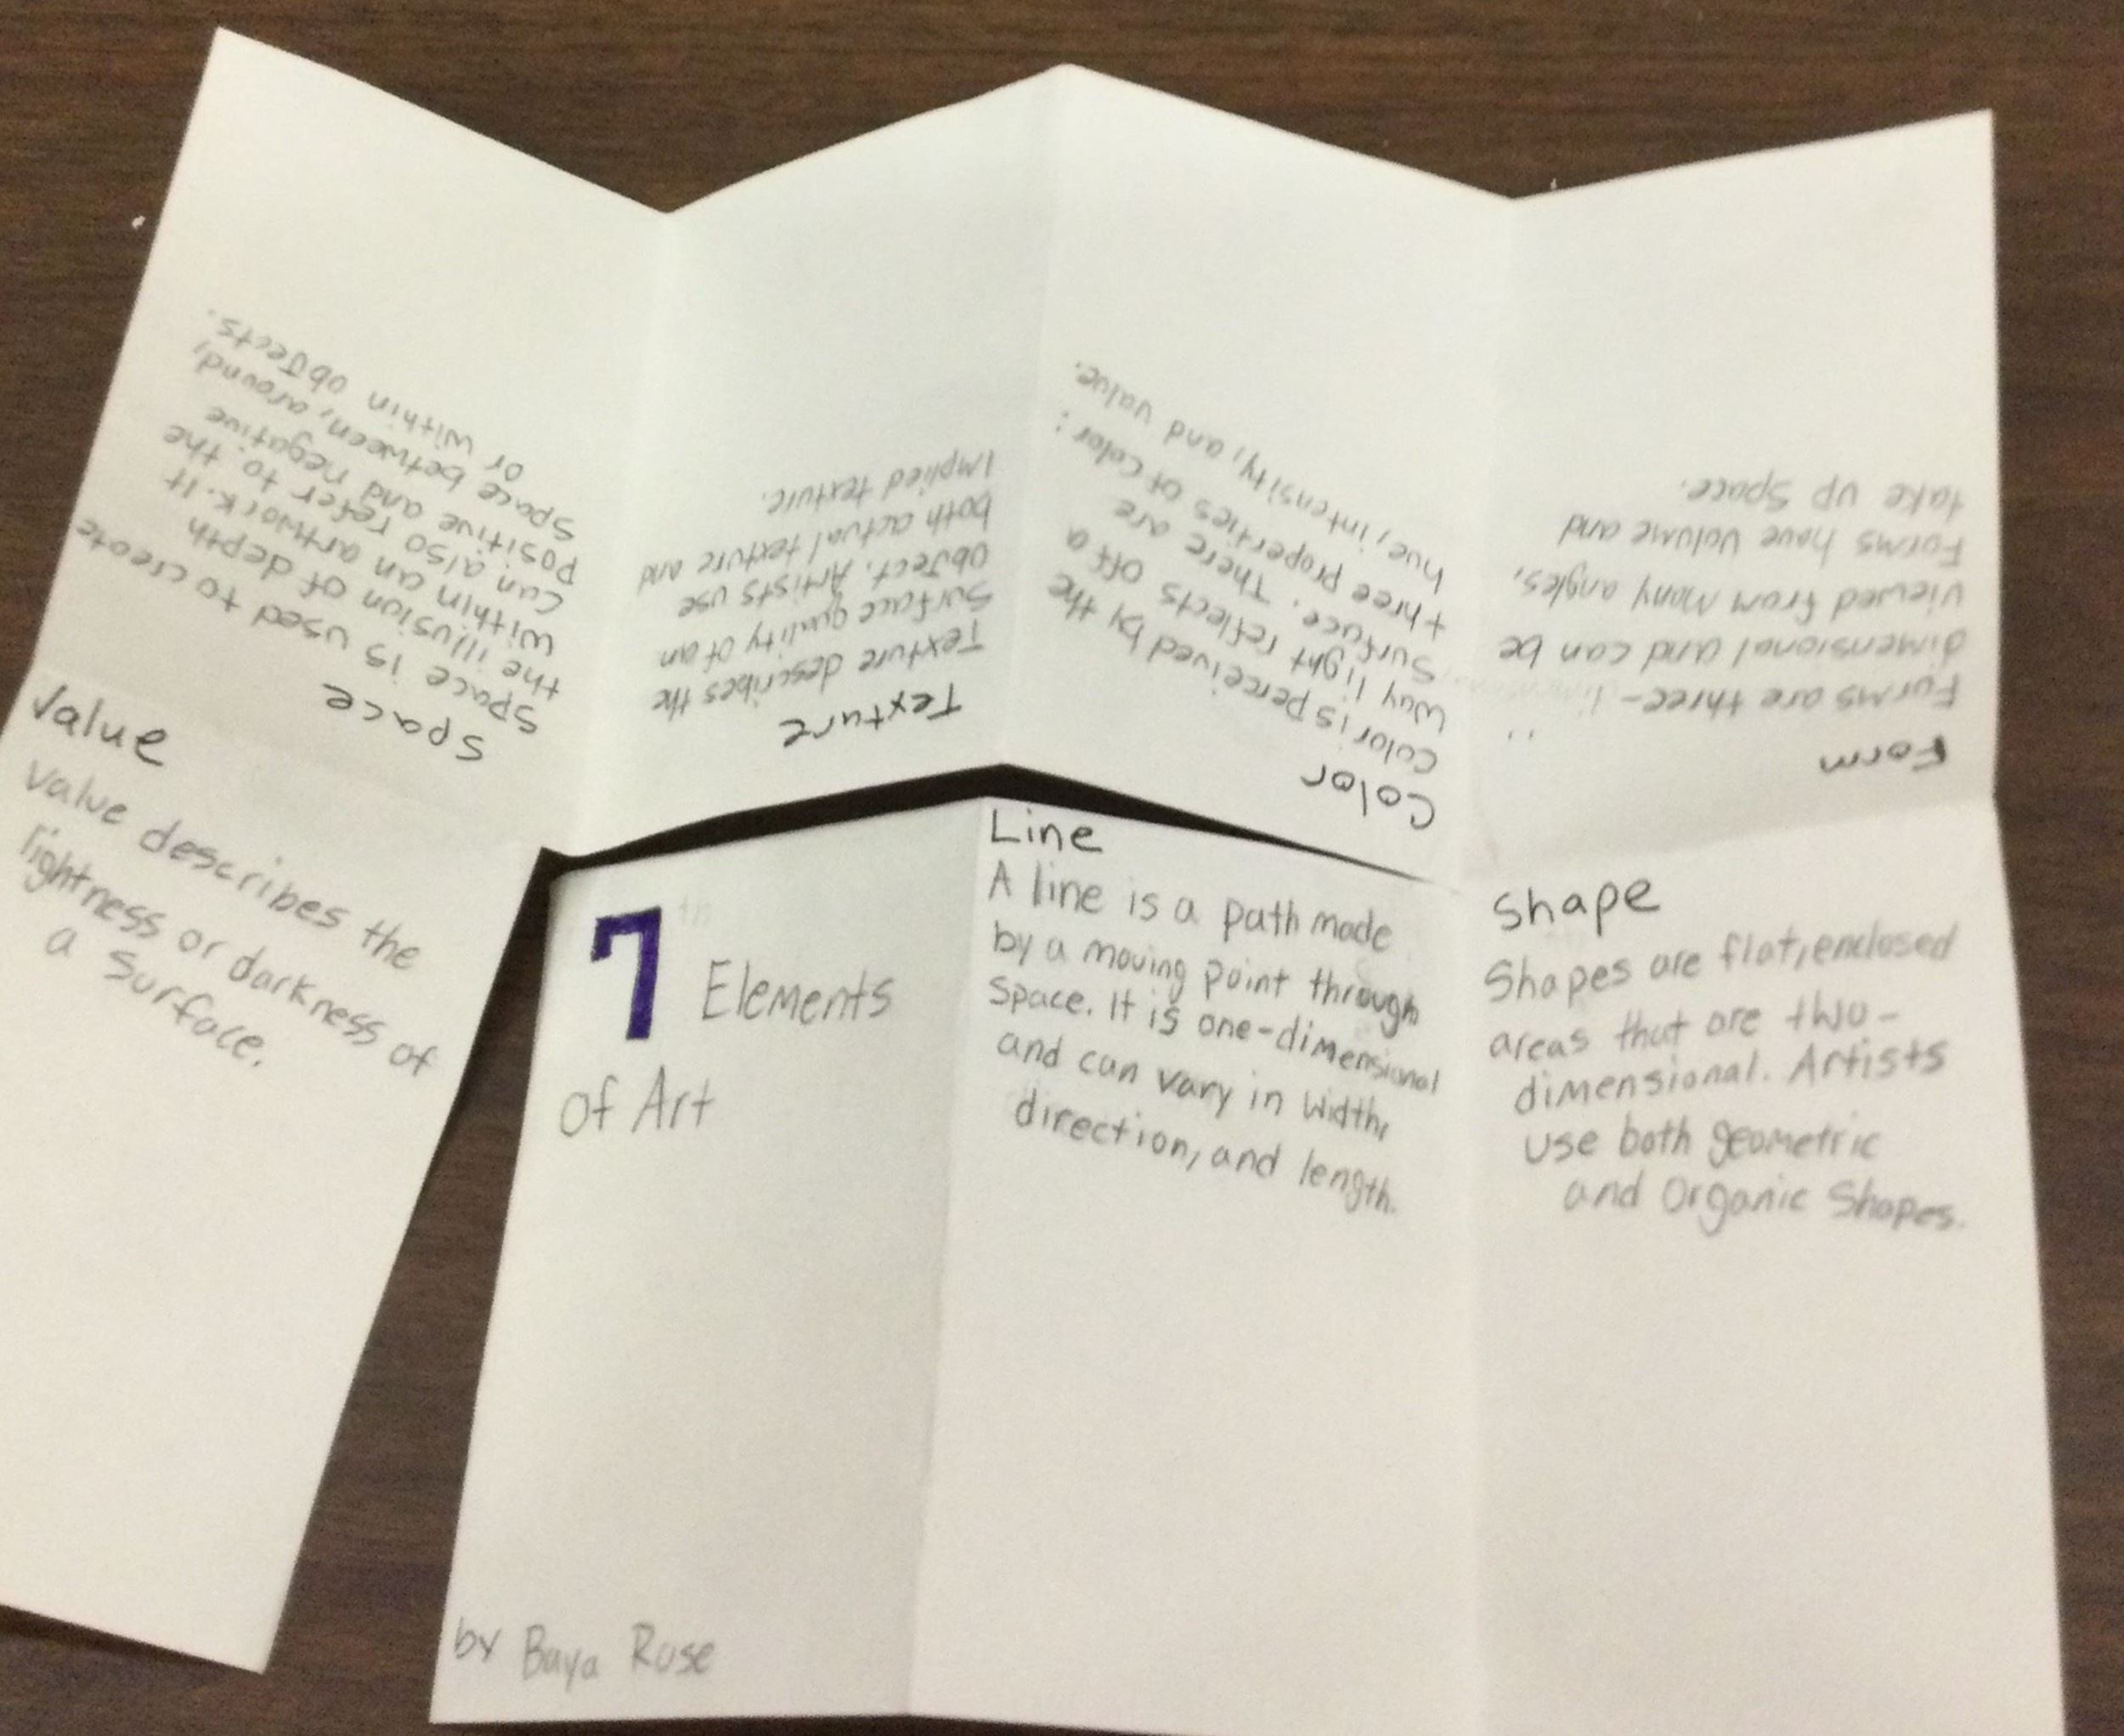 7 Elements
of Art
by Baya Rose
Line
A line is a path made
by a moving point through
Space. It is one-dimensional
and can vary in width,
direction, and length.
Shape
Shapes are flat, enclosed
areas that are two-
dimensional. Artists
use both geometric
and Organic Shapes.
Form
Forms are three-
dimensional and can be
viewed from Many angles.
Forms have volume and
take up Space.
Color
Color is perceived by the
way light reflects off a
Surface. There are
three properties of Color:
hue, intensity, and value.
Texture
Texture describes the
Surface quality of an
object. Artists use
both actual texture and
Implied texture.
Space
Space is used to create
the illusion of depth
within an artwork. It
can also refer to the
Positive and negative
Space between, around,
or within objects.
Value
Value describes the
lightness or darkness of
a Surface.